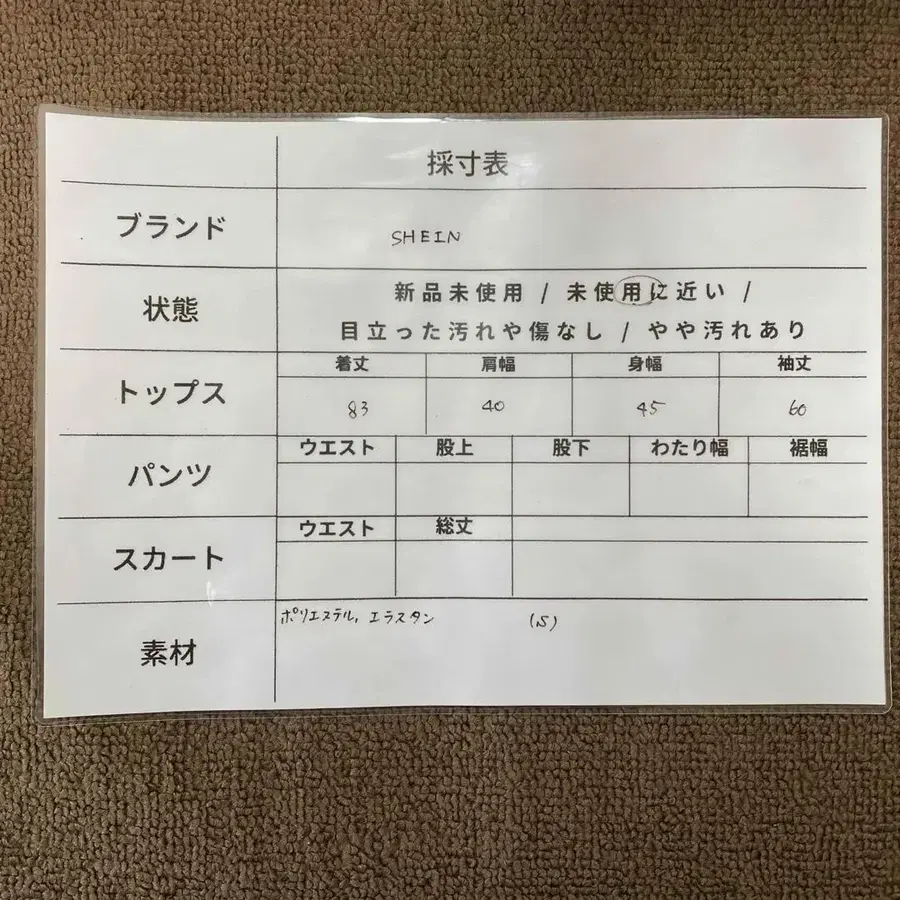 採寸表
ブランド
SHEIN
状態
新品未使用 / 未使用に近い /
目立った汚れや傷なし / やや汚れあり
トップス
着丈 肩幅 身幅 袖丈
83 40 45 60
パンツ
ウエスト 股上 股下 わたり幅 裾幅
スカート
ウエスト 総丈
素材
ポリエステル, エラスタン (S)